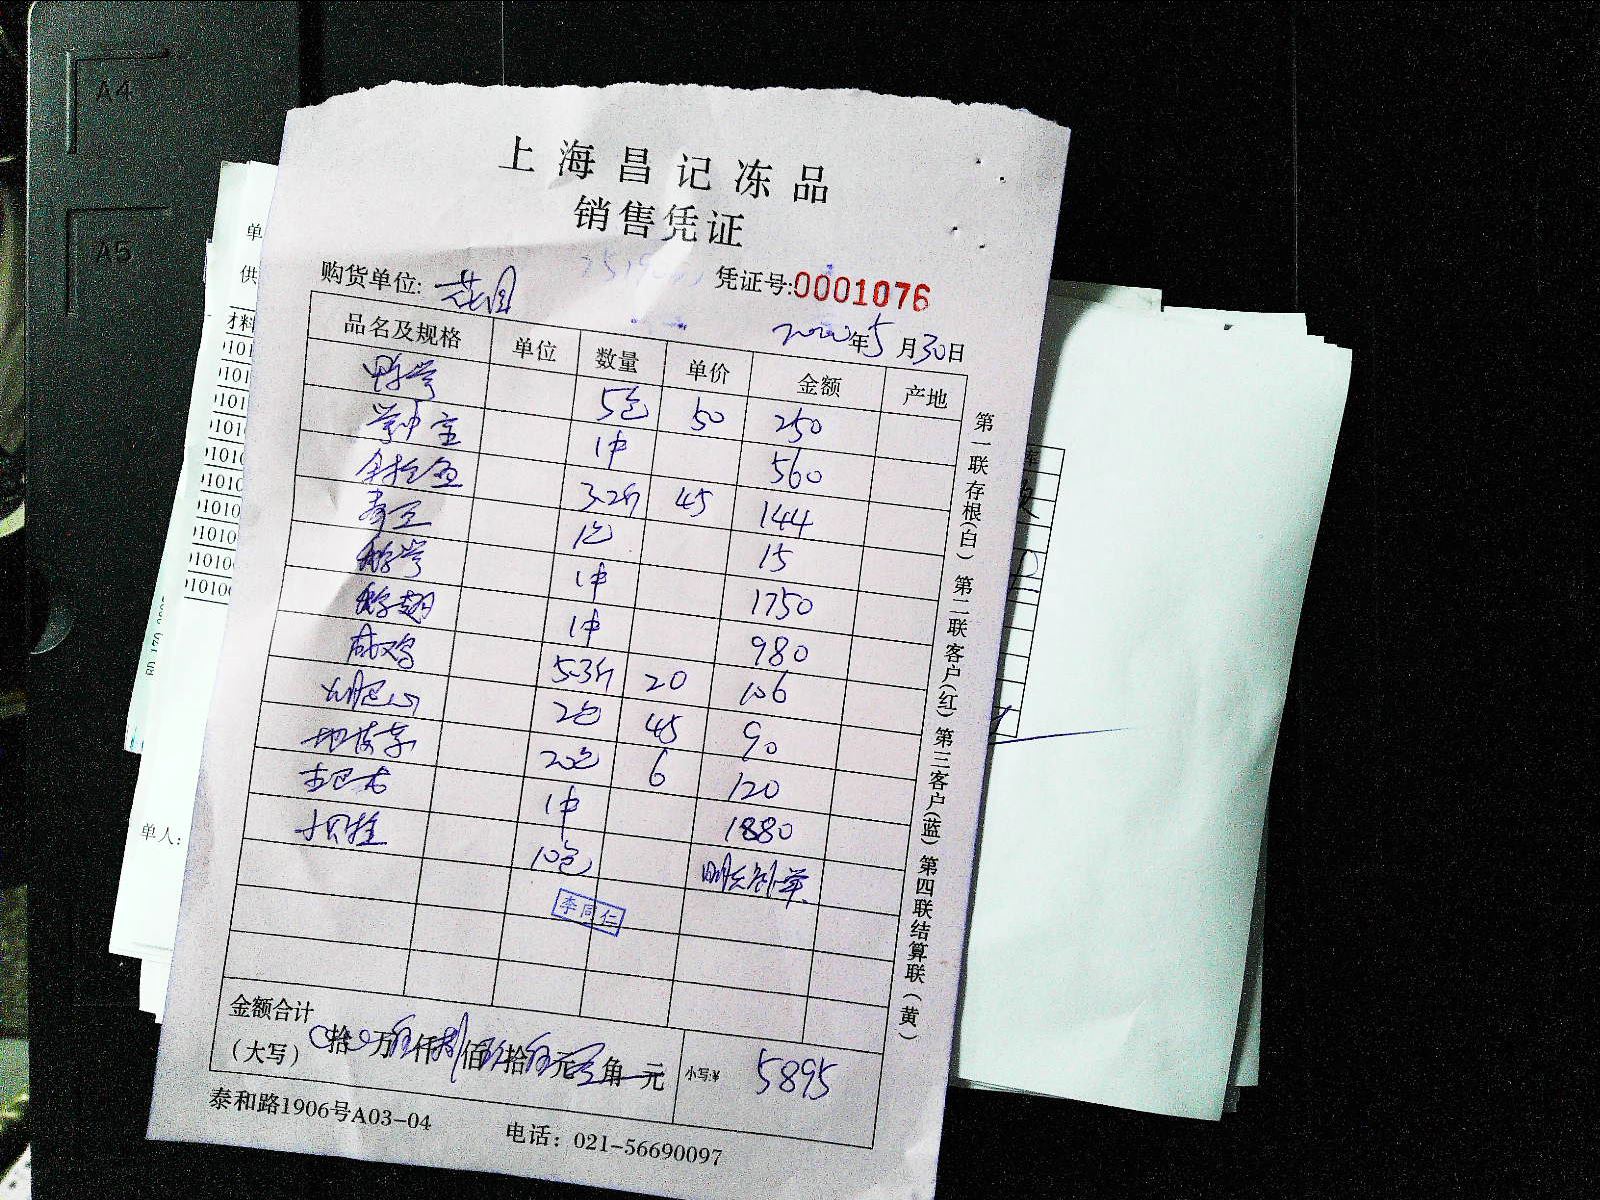 A4
A5
上海昌记冻品
销售凭证
购货单位: 花园
凭证号:0001076
2020年5月30日
品名及规格 单位 数量 单价 金额 产地
鸭掌 5包 50 250
掌中宝 1件 560
3.2斤 45 144
1包 15
鹅掌 1件 1750
鹅翅 1件 980
咸鸡 5.3斤 20 106
2包 45 90
20包 6 120
1件 1880
10包
李同仁
第一联存根(白) 第二联客户(红) 第三客户(蓝) 第四联结算联(黄)
金额合计
(大写) 0拾0万伍仟捌佰玖拾伍元 角 元
小写:¥ 5895
泰和路1906号A03-04
电话: 021-56690097
单
供
材料
单人: